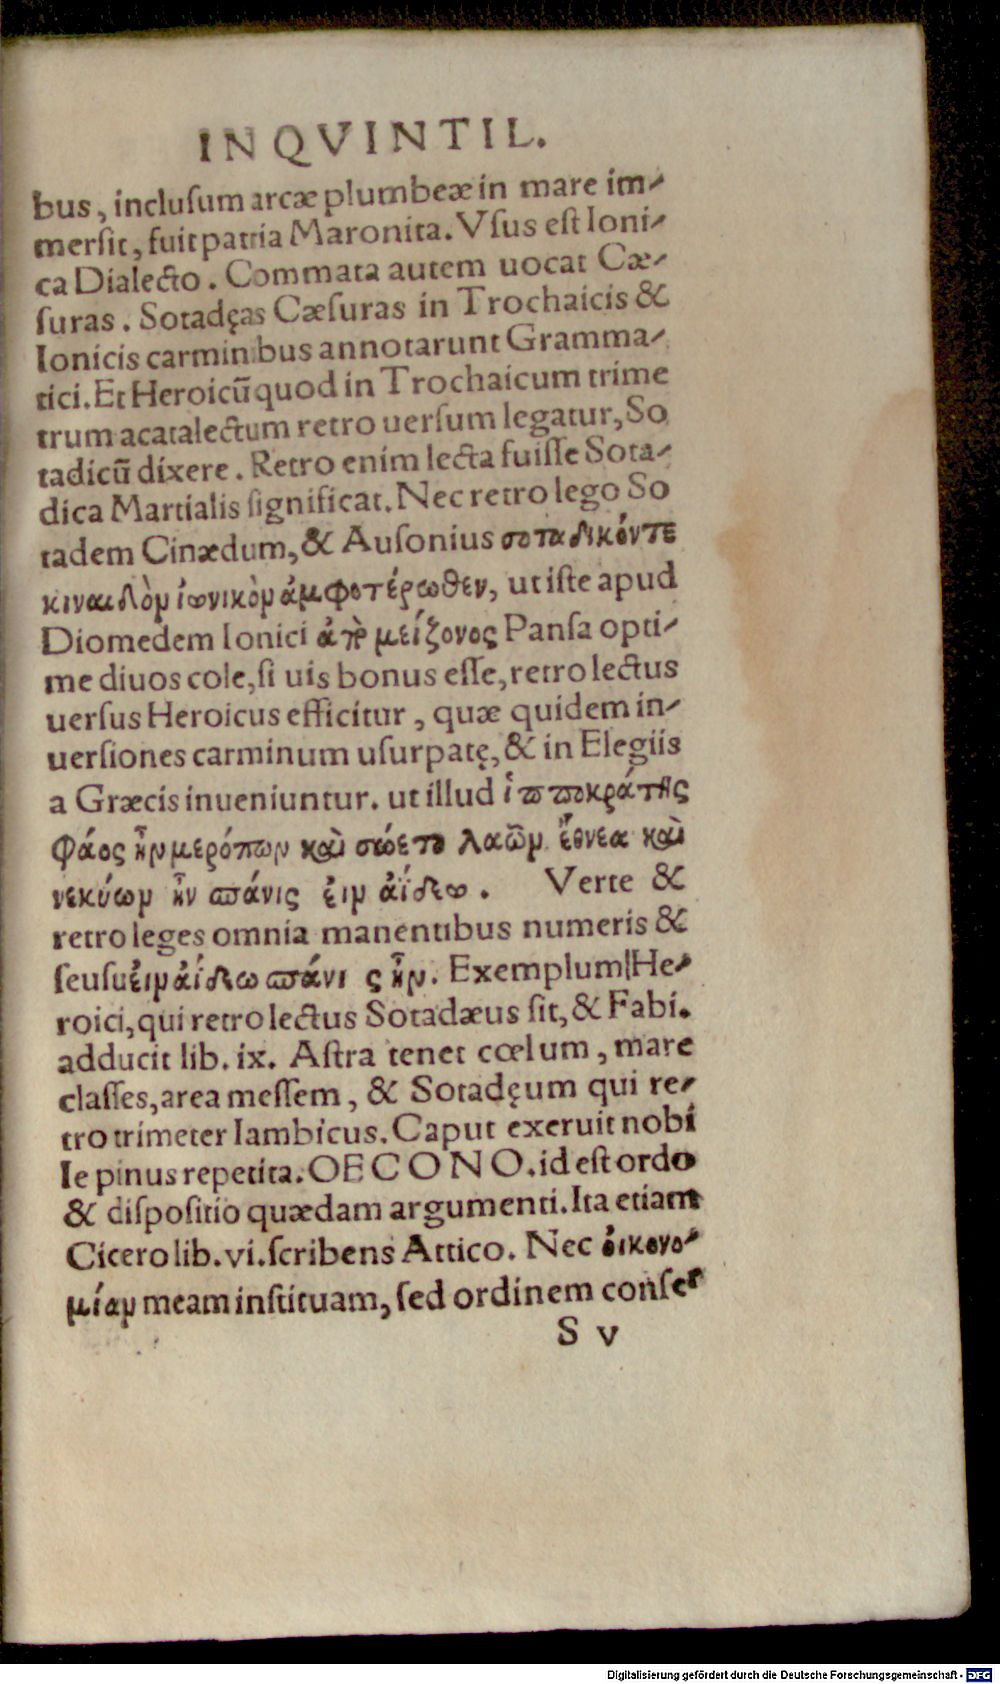 IN QVINTIL.
bus, inclusum arcæ plumbeæ in mare im-
mersit, fuit patria Maronita. Vsus est Ioni-
ca Dialecto. Commata autem uocat Cæ-
suras. Sotadęas Cæsuras in Trochaicis &
Ionicis carminibus annotarunt Gramma-
tici. Et Heroicũ quod in Trochaicum trime
trum acatalectum retro uersum legatur, So
tadicũ dixere. Retro enim lecta fuisse Sota-
dica Martialis significat. Nec retro lego So
tadem Cinædum, & Ausonius σοταδικόν τε
κιναιδὸν ἰωνικὸν ἀμφοτέρωθεν, ut iste apud
Diomedem Ionici ἀπὸ μείζονος Pansa opti-
me diuos cole, si uis bonus esse, retro lectus
uersus Heroicus efficitur, quæ quidem in-
uersiones carminum usurpatę, & in Elegiis
a Græcis inueniuntur. ut illud ἱπποκράτης
φάος ἦν μερόπων καὶ σώετο λαῶν ἔθνεα καὶ
νεκύων ἦν σπάνις εἰν ἀΐδεω. Verte &
retro leges omnia manentibus numeris &
seusu εἰν ἀΐδεω σπάνι ς ἦν. Exemplum He-
roici, qui retro lectus Sotadæus sit, & Fabi.
adducit lib. ix. Astra tenet cœlum, mare
classes, area messem, & Sotadęum qui re-
tro trimeter Iambicus. Caput exeruit nobi
le pinus repetita. OECONO. id est ordo
& dispositio quædam argumenti. Ita etiam
Cicero lib. vi. scribens Attico. Nec οἰκονο-
μίαν meam instituam, sed ordinem conser
S v
Digitalisierung gefördert durch die Deutsche Forschungsgemeinschaft - DFG